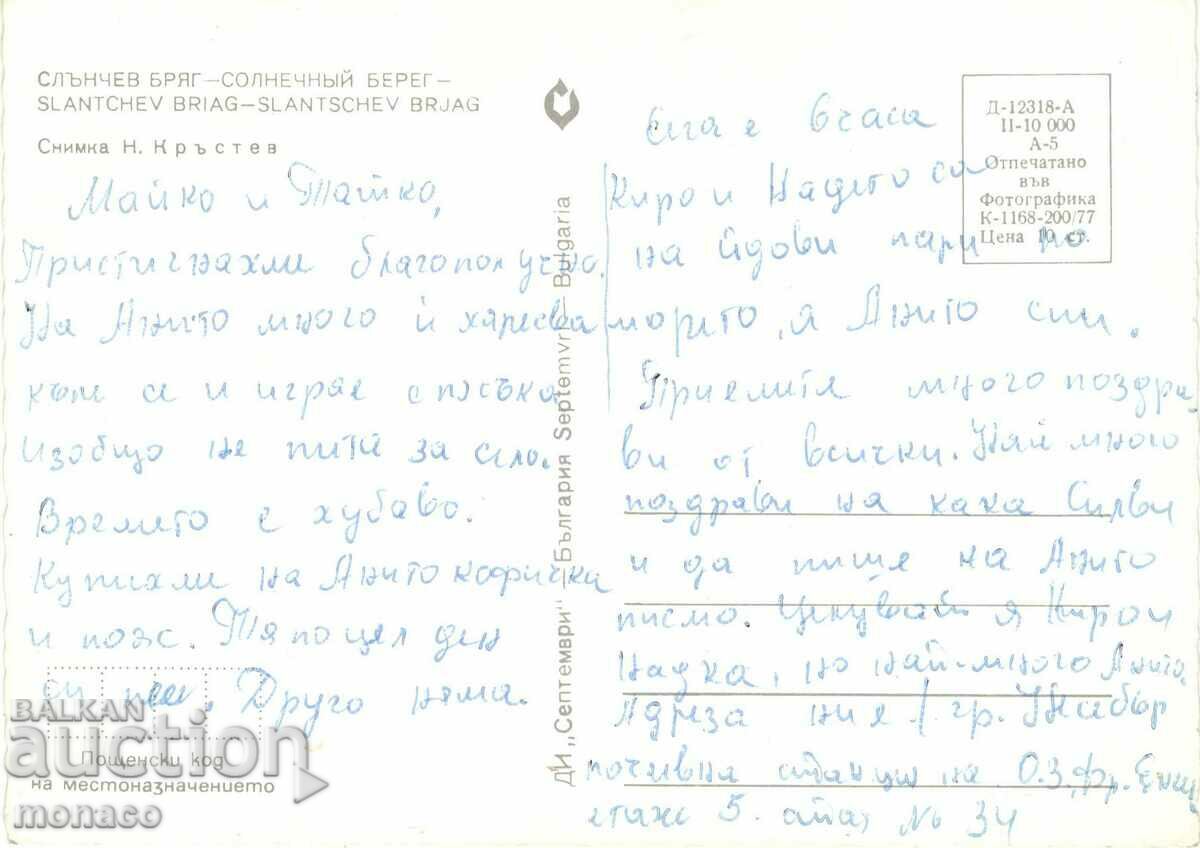 СЛЪНЧЕВ БРЯГ—СОЛНЕЧНЫЙ БЕРЕГ—
SLANTCHEV BRIAG—SLANTSCHEV BRJAG
Снимка Н. Кръстев
Майко и Татко,
Пристигнахми благополучно.
На Анито много й харесва
къпе се и играе с пясъка
изобщо не пита за село.
Времето е хубаво.
Купихми на Анито кофичка
и пояс. Тя по цел ден
си пее. Друго няма.
BALKAN
auction
Пощенски код
на местоназначението
monaco
ДИ „Септември" — България Septemvri — Bulgaria
Д-12318-А
II-10 000
А-5
Отпечатано
във
Фотографика
К-1168-200/77
Цена 10 ст.
Сига е в часа
Киро и Надето са
на пари по
морето, я Анито спи.
Приемите много поздра
ви от всички. Най много
поздрави на кака Силви
и да пише на Анито
писмо. Целуват я Киро и
Надка, но най-много Анито.
Адреза ния / гр.
почивна станция на О.З. „Фр. Енгц
етаж 5. стая № 34